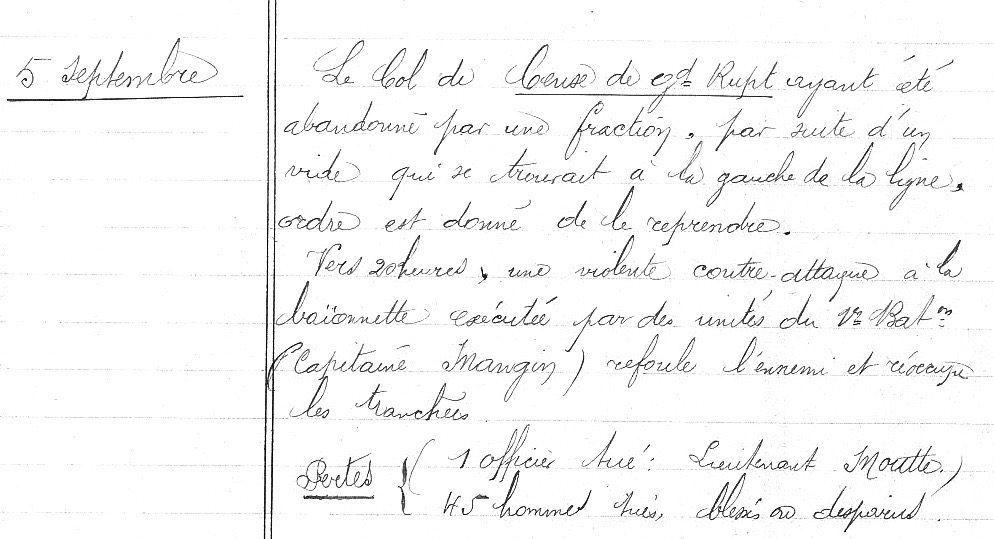 5 Septembre
Le Col de Cense de gd Rupt ayant été
abandonné par une fraction, par suite d'un
vide qui se trouvait à la gauche de la ligne,
ordre est donné de le reprendre.
Vers 20 heures, une violente contre-attaque à la
baïonnette exécutée par des unités du Bat.on
(Capitaine Mangin) refoule l'ennemi et réoccupe
les tranchées
Pertes { ( 1 officier tué : Lieutenant Moutte. )
45 hommes tués, blessés ou disparus.